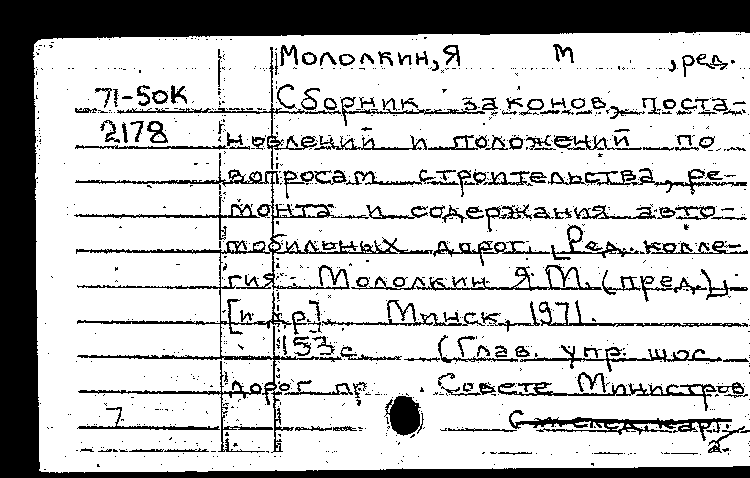 Мололкин, Я М , ред.
71-50К Сборник законов, поста-
2178 новлений и положений по
вопросам строительства, ре-
монта и содержания авто-
мобильных дорог. [Ред. колле-
гия: Мололкин Я.М. (пред.)
[и др]. Минск, 1971.
153 с. (Глав. упр. шос.
дорог пр Совете Министров
7 См. след. карт.
2.